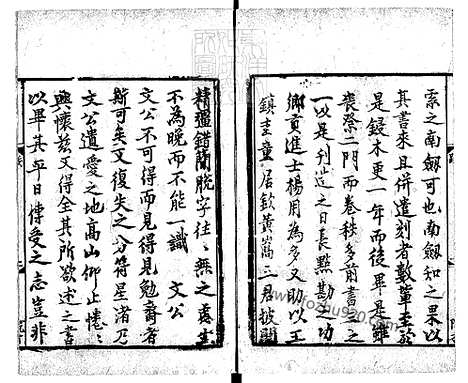 索之南劔可也南劔知之果以
其書來且併遣刻者數輩至於
是鋟木更一年而後畢是雖
喪祭二門而卷秩多前書三之
一以是刊造之日長點勘之功
鄉貢進士楊用為多又助以工
鎮圭童居欽黃嵩三君披閱
精彊錯簡脫字往往無之虙生
不為晚而不能一識　文公
文公不可得而見得見勉齋者
斯可矣又復失之分符星渚乃
文公遺愛之地高山仰止惓惓
興懷茲又得全其所欲述之書
以畢其平日傳受之志豈非
www.foshu920.com